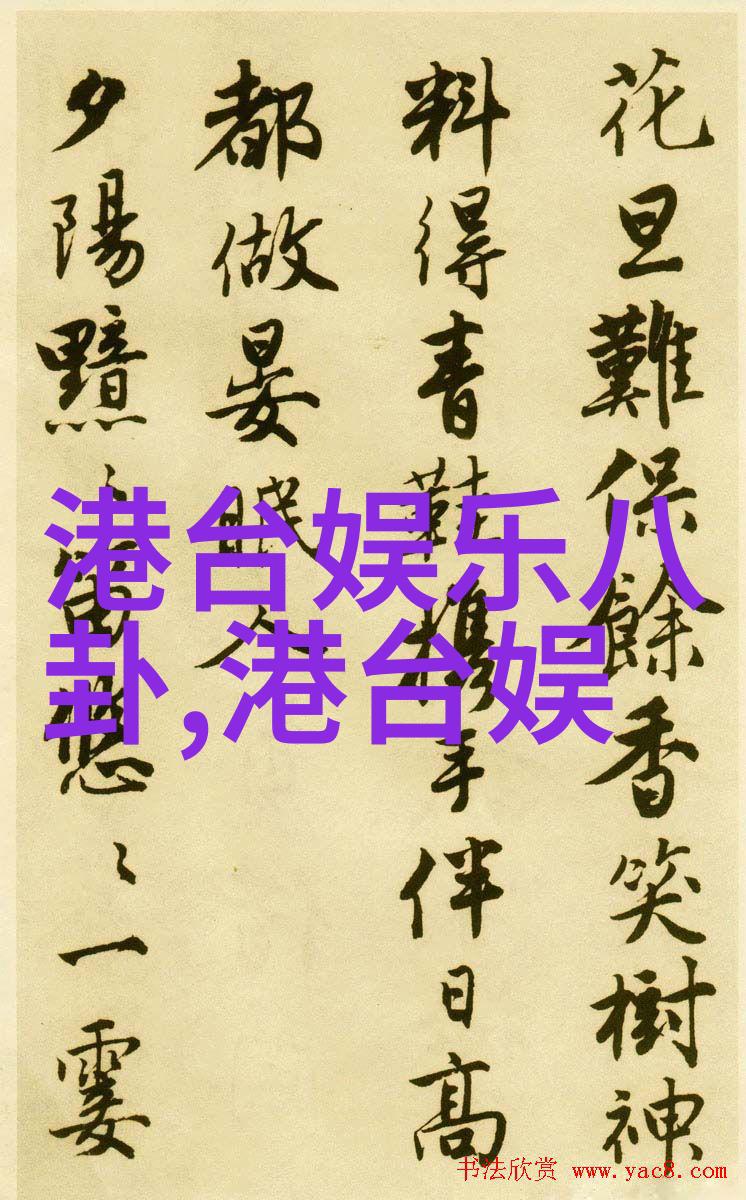 港台娱乐八
卦,港台娱
花旦難保餘香笑樹神
料得青鞋攜手伴日高
都做晏眠人
夕陽黯〻笛悠〻一霎
书法欣赏 www.yac8.com